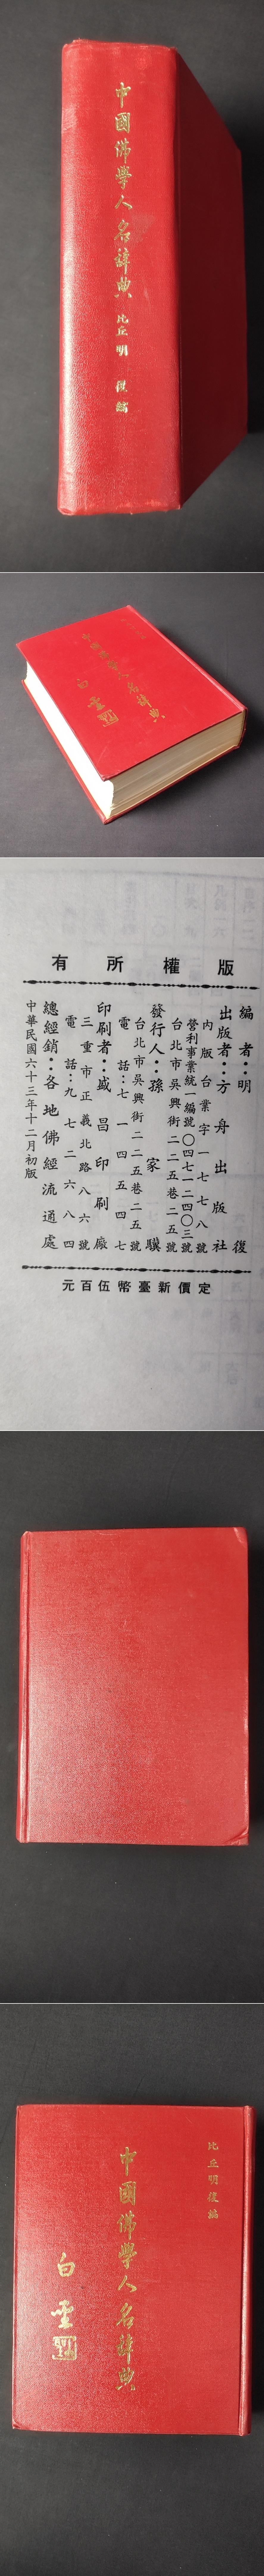 中國佛學人名辭典
比丘 明 復 編
中國佛學人名辭典
白雲
版權所有
編者：明復
出版者：方舟出版社
內版台業字一七七八號
營利事業統一編號〇四七一二四〇三號
台北市吳興街二二五巷二五號
發行人：孫家驥
台北市吳興街二二五巷二五號
電話：七一四五四七
印刷者：盛昌印刷廠
三重市正義北路八六號
電話：九七二六八四
總經銷：各地佛經流通處
中華民國六十三年十二月初版
定價新臺幣伍百元
比丘明復編
中國佛學人名辭典
白雲